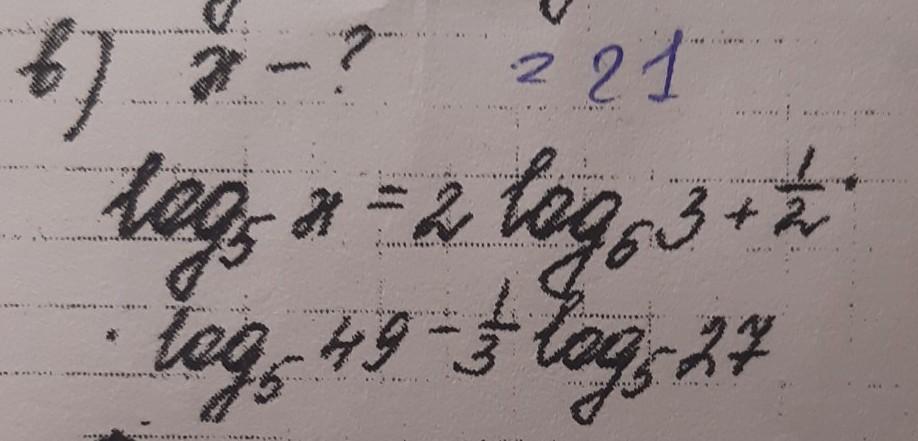 в) x - ? = 21
log₅ x = 2 log₆ 3 + 1/2 ·
· log₅ 49 - 1/3 log₅ 27